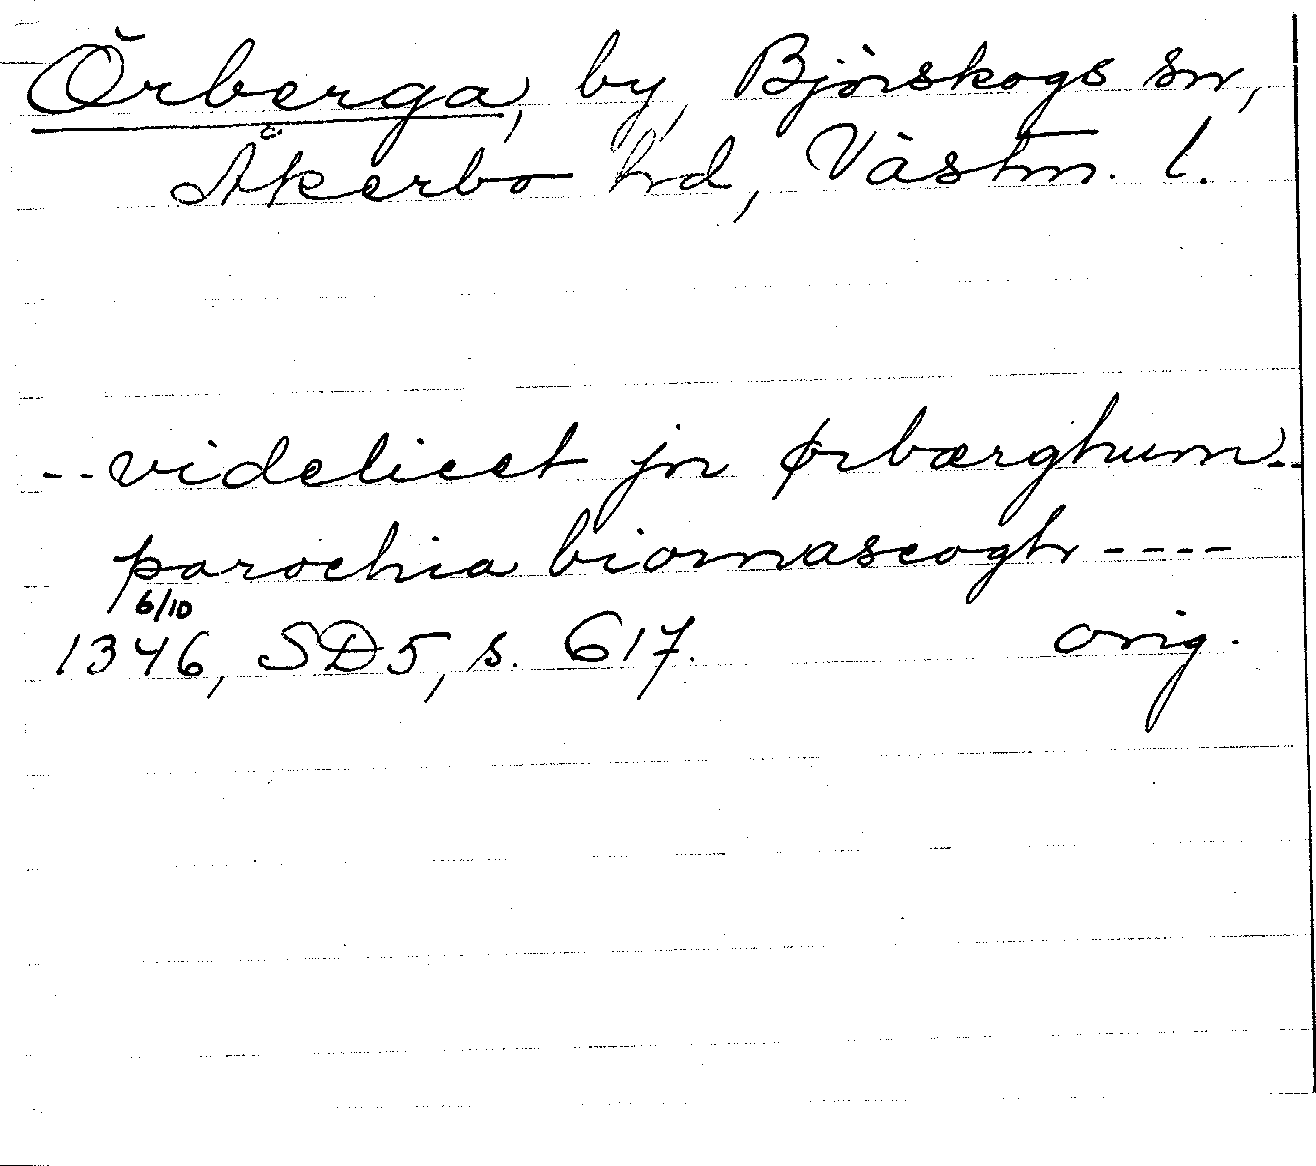 Örberga, by, Björskogs sn,
Åkerbo hd, Västm. l.
--videlicet jn ørbærghum--
parochia biornascogh ----
6/10
1346, SD5, s. 617. orig.